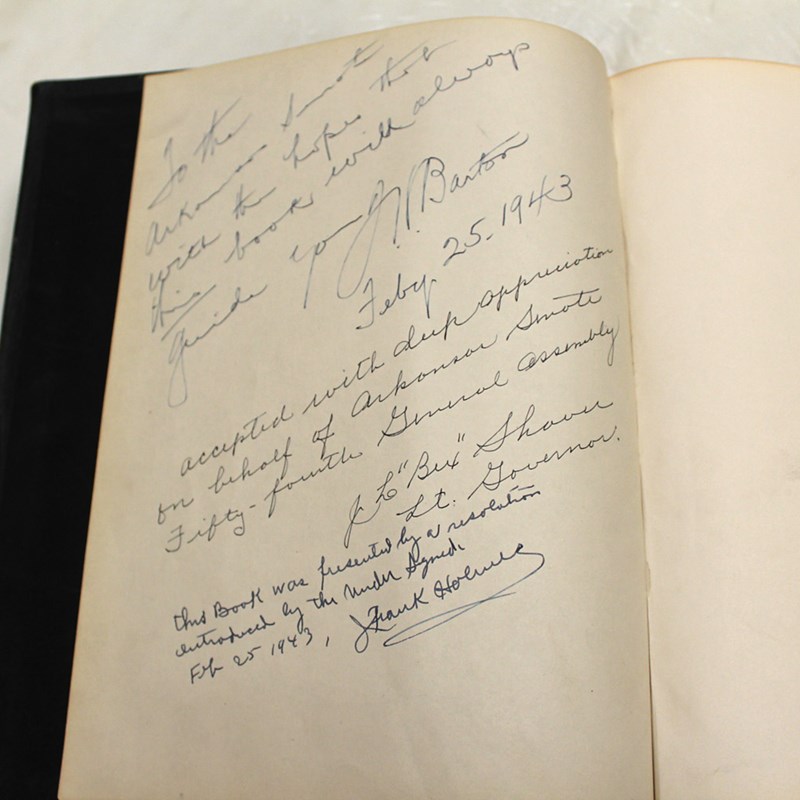 To the
Arkansas Senate
with the hopes that
this book will always
guide you J.V. Barton
Feby. 25-1943
accepted with deep appreciation
on behalf of Arkansas Senate
Fifty-fourth General Assembly
J L "Bex" Shaver
Lt. Governor.
This Book was presented by a resolution
introduced by the Under Signed
Feb 25 1943, Frank Holmes